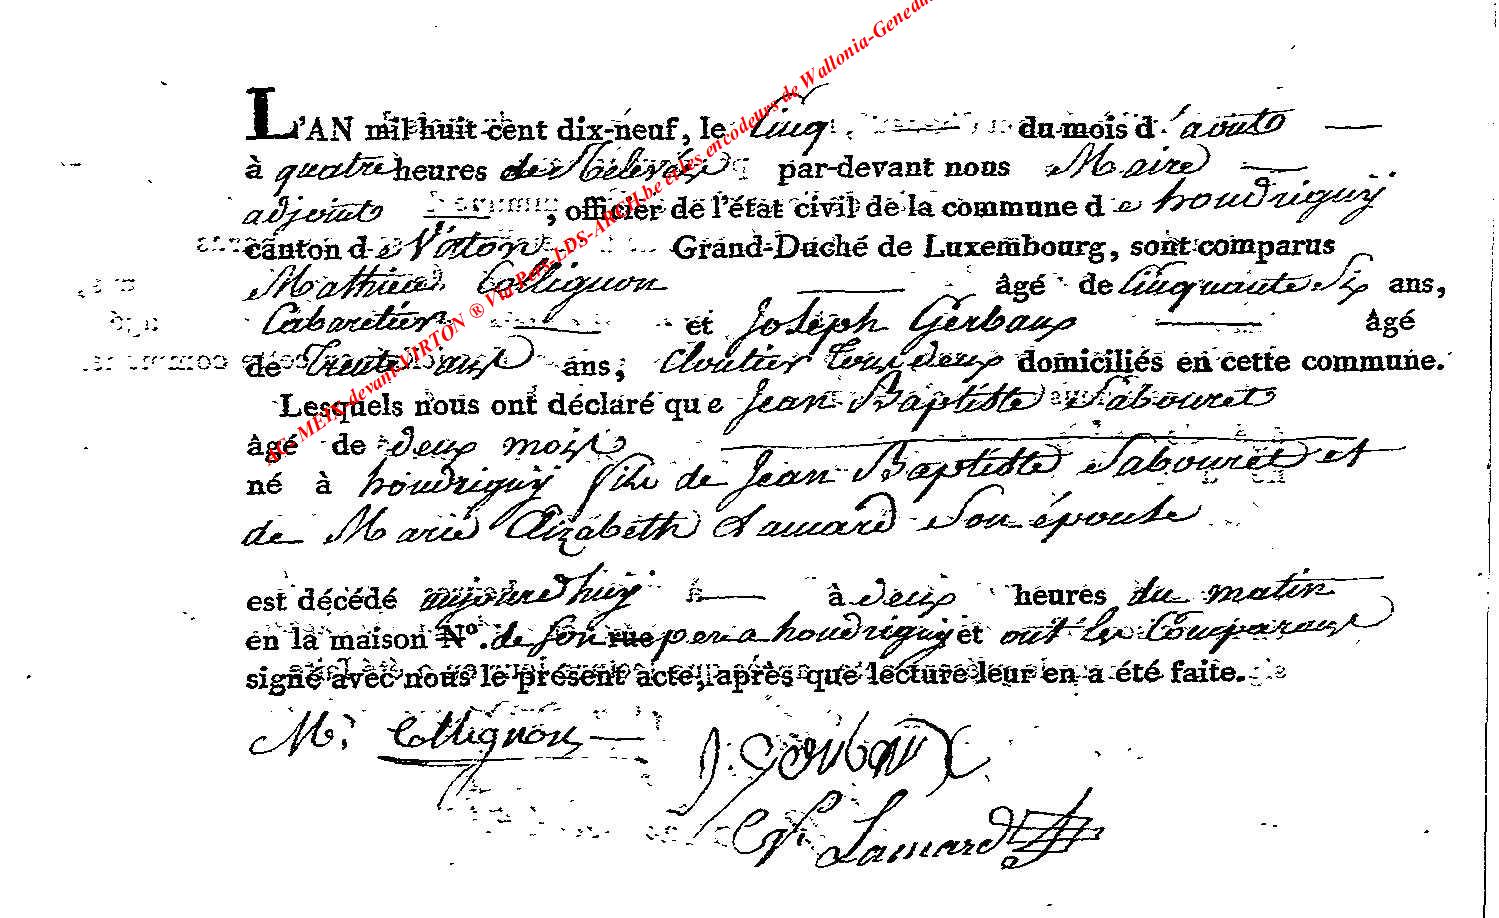 L'AN mil huit cent dix-neuf, le Cinq du mois d'aout
à quatre heures de Rélevée par-devant nous Maire
adjoint, officier de l'état civil de la commune de houdriguÿ
canton de Virton Grand-Duché de Luxembourg, sont comparus
Mathieu Collignon âgé de Cinquante Six ans,
Cabaretier et Joseph Gerbaux âgé
de Trente ans, Cloutier tous deux domiciliés en cette commune.
Lesquels nous ont déclaré que Jean Baptiste Sabouret
âgé de deux mois
né à houdriguÿ fils de Jean Baptiste Sabouret et
de Marie Elizabeth Lamard Son épouse
est décédé aujourd'huÿ à deux heures du matin
en la maison N°. de Son rue pere a houdriguÿ et ont les Comparans
signé avec nous le présent acte, après que lecture leur en a été faite.
M. Collignon
J. Gerbaux
Lamard
AC-METX-devant-VIRTON ® Via Pers-LDS-ARCH.be et les encodeurs de Wallonia-Genedata